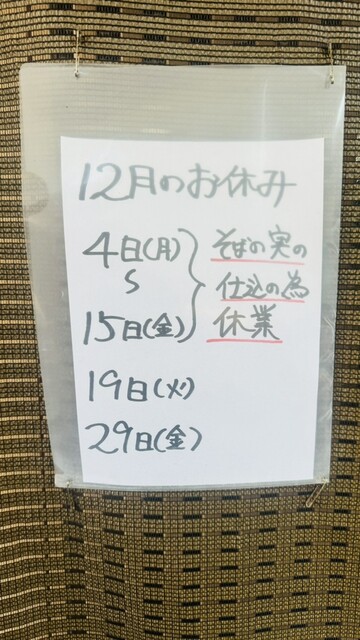 12月のお休み
4日(月)
〜
15日(金)
そばの実の
仕込の為
休業
19日(火)
29日(金)